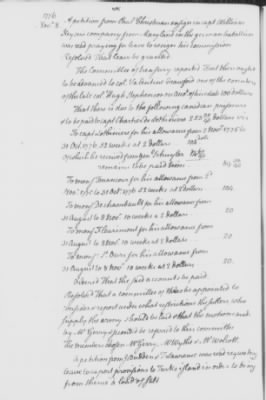 1776
Nov. 8.
A petition from Paul Christman ensign in capt William
Heyser's company from Maryland in the german battalion
was read praying for leave to resign his commission
Resolved That leave be granted
The Committee of treasury reported that there ought
to be advanced to col. Valentine Crawford one of the executors
of the late col. Hugh Stephenson on accot of his estate 1000 dollars
That there is due to the following canadian prisoners
to be paid to capt Charles de Lotbiniere 252 dollars viz
To capt Lotbiniere for his allowance from 2 Nov. 1775 to
31 Oct. 1776. 52 weeks at 2 dollars 104
of which he received
remains to be paid him
To monsr for his allowance from
Nov. 1775 to 31 Oct. 1776 52 weeks at 2 dollars 104
To monsr Dechambault for his allowance from
31 August to 8 Nov. 10 weeks at 2 dollars 20
To monsr Fleurimont for his allowance from
31 August to 8 Nov. 10 weeks at 2 dollars 20
To monsr St. Ours for his allowance from
31 August to 8 Nov. 10 weeks at 2 dollars 20.
Ordered That the said accounts be paid.
Resolved That a committee of three be appointed to
consider & report under what restrictions the settlers, who
supply the army should be laid & that the motion made
by Mr Gerry & seconded be referred to this committee
The members chosen Mr Gerry, Mr Wythe & Mr Wolcott
A petition from was read requesting
leave to export provisions to Turks island in order to bring
from thence a load of salt